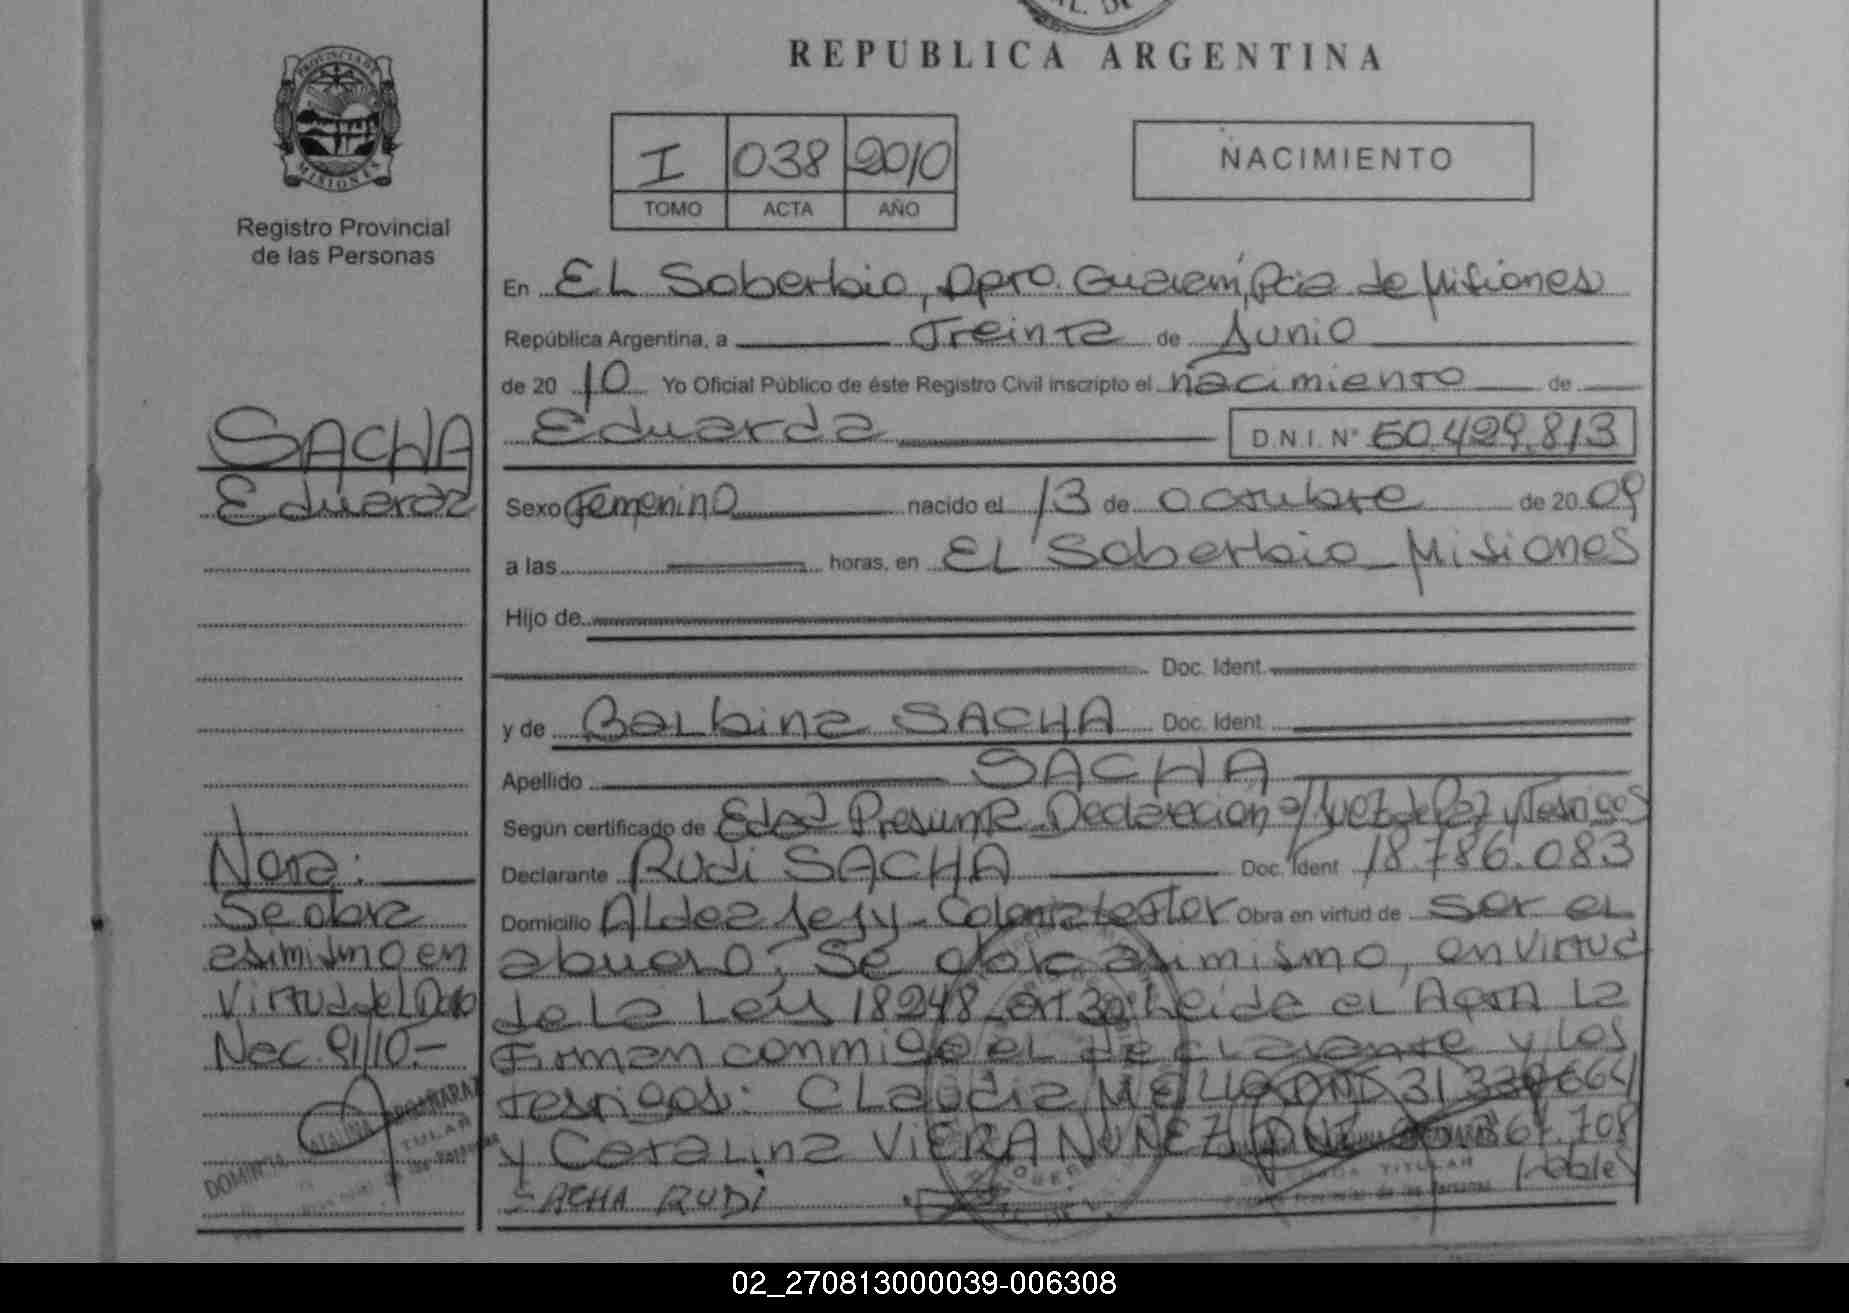 REPUBLICA ARGENTINA
PROVINCIA DE
MISIONES
Registro Provincial
de las Personas
I 038 2010
TOMO ACTA AÑO
NACIMIENTO
En EL Soberbio, Dpto. Guaraní, Pcia de Misiones
República Argentina, a Treinta de Junio
de 20 10 Yo Oficial Público de éste Registro Civil inscripto el nacimiento de
Eduarda D.N.I. Nº 50.429.813
Sexo Femenino nacido el 13 de octubre de 20 09
a las horas, en EL Soberbio Misiones
Hijo de
Doc. Ident.
y de Balbina SACHA Doc. Ident.
Apellido SACHA
Según certificado de Edad Presunta Declaracion Juez de Paz y Testigos
Declarante Rudi SACHA Doc. Ident 18.786.083
Domicilio Aldea Jejy - Colonia Obra en virtud de ser el
abuelo; Se obra asimismo, en virtud
de la Ley 18248 Leida el Acta la
Firman conmigo el declarante y los
testigos: Claudia DNI 31
y Catalina VIERA NUÑEZ DNI 67.708
SACHA RUDI
SACHA
Eduarda
Nota:
Se obra
asimismo en
Virtud del Dcto
Nac. 91/10.-
02_270813000039-006308